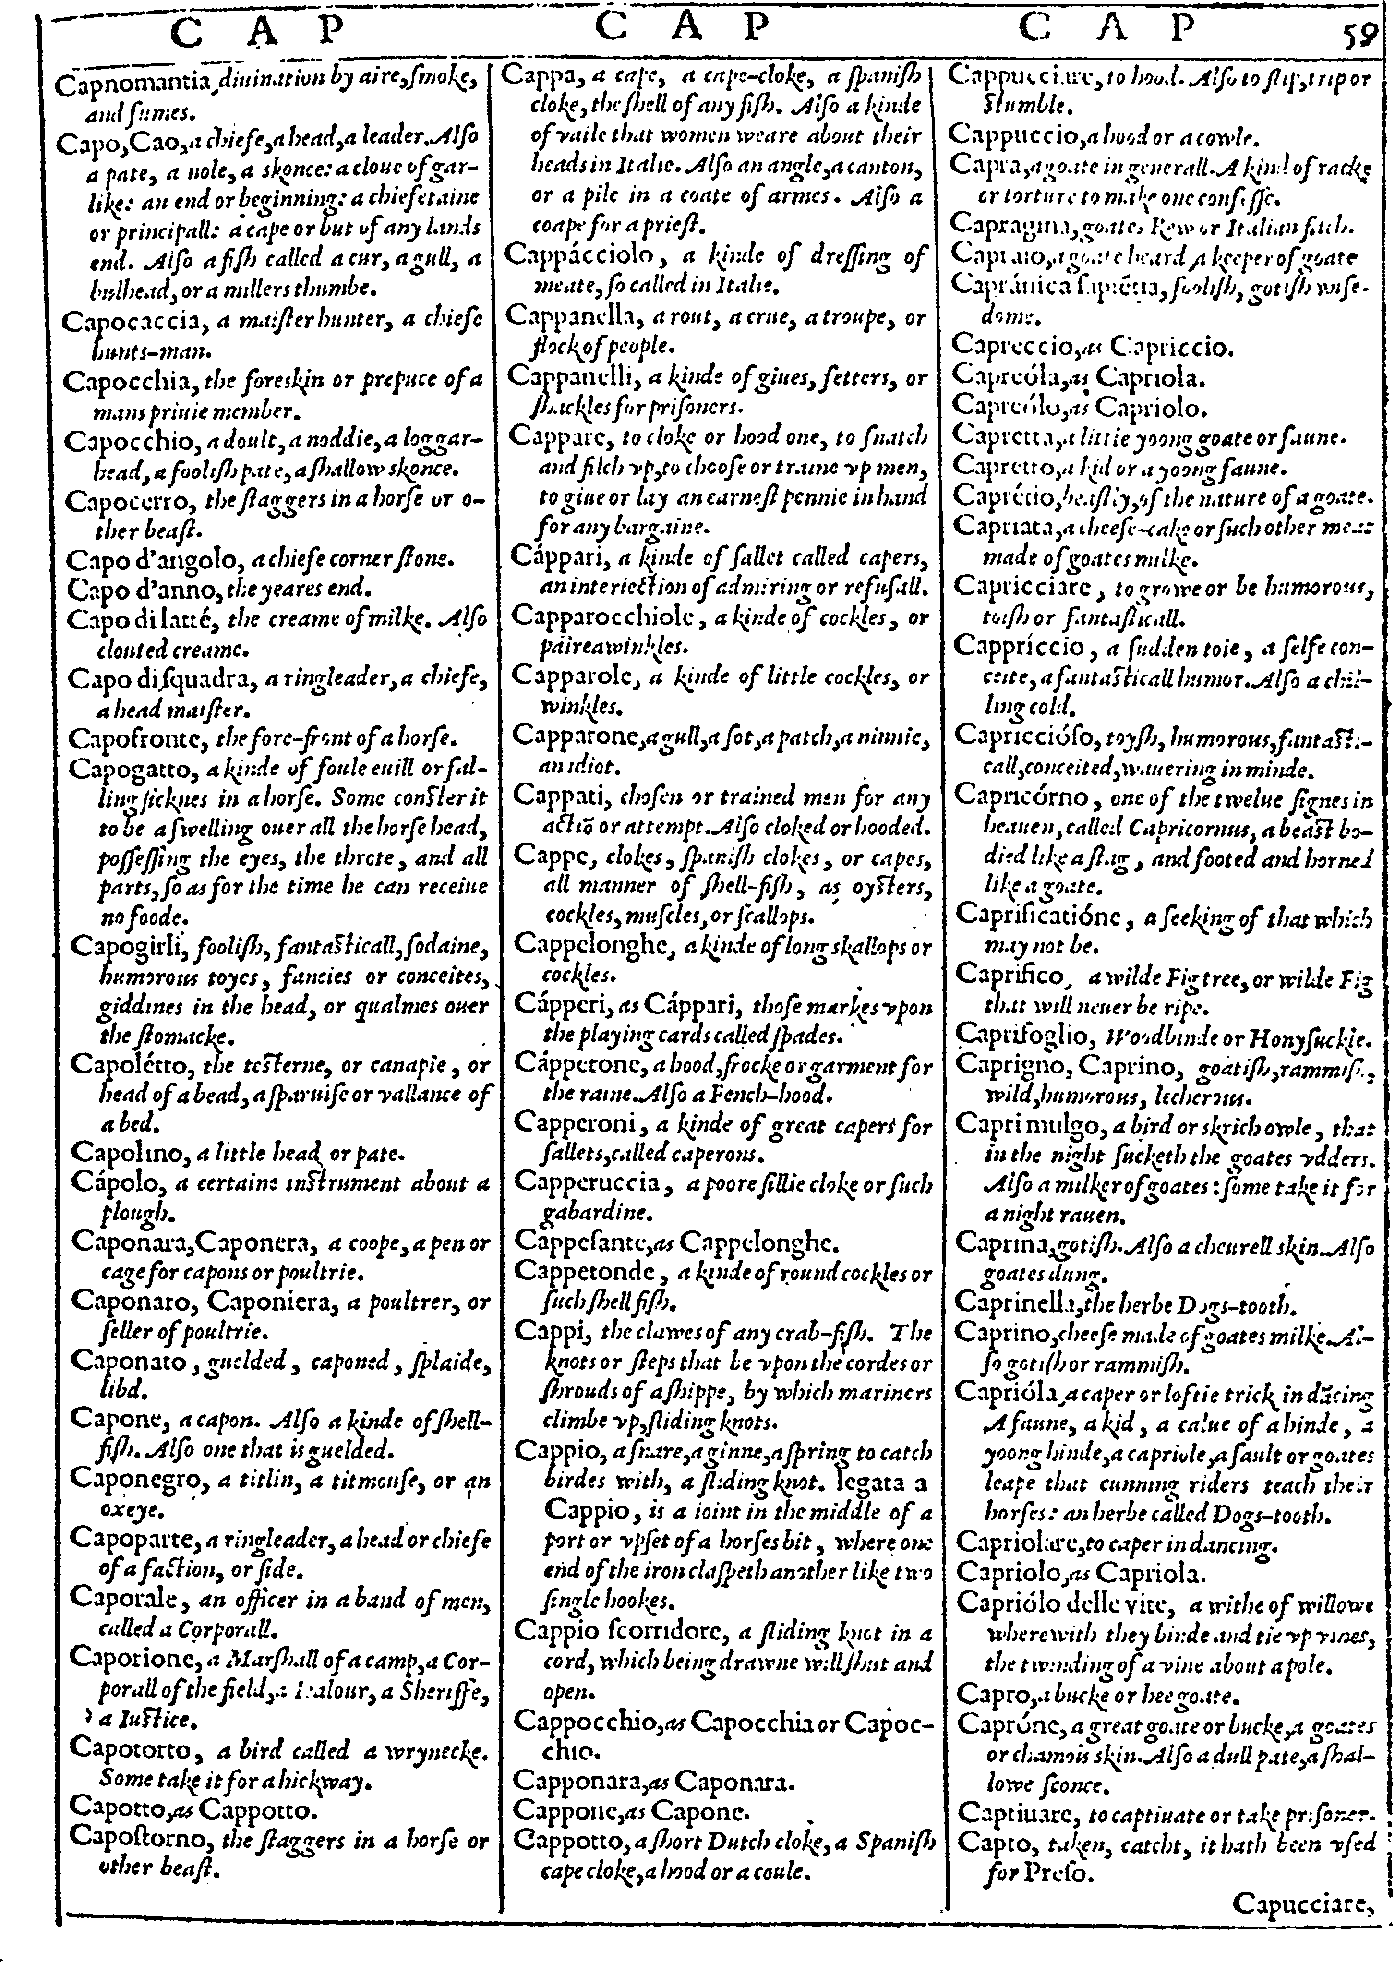 C A P C A P C A P 59
Capnomantia, diuination by aire, ſmoke,
and fumes.
Capo, Cao, a chiefe, a head, a leader. Alſo
a pate, a nole, a skonce: a cloue of gar-
like: an end or beginning: a chiefetaine
or principall: a cape or but of any lands
end. Alſo a fiſh called a cur, a gull, a
bulhead, or a millers thumbe.
Capocaccia, a maiſter hunter, a chiefe
hunts-man.
Capocchia, the foreskin or prepuce of a
mans priuie member.
Capocchio, a doult, a noddie, a loggar-
head, a fooliſh pate, a ſhallow skonce.
Capocerro, the ſtaggers in a horſe or o-
ther beaſt.
Capo d'angolo, a chiefe corner ſtone.
Capo d'anno, the yeares end.
Capo di latté, the creame of milke. Alſo
clouted creame.
Capo diſquadra, a ringleader, a chiefe,
a head maiſter.
Capofronte, the fore-front of a horſe.
Capogatto, a kinde of foule euill or fal-
ling ſicknes in a horſe. Some conſter it
to be a ſwelling ouer all the horſe head,
poſſeſſing the eyes, the throte, and all
parts, ſo as for the time he can receiue
no foode.
Capogirli, fooliſh, fantaſticall, ſodaine,
humorous toyes, fancies or conceites,
giddines in the head, or qualmes ouer
the ſtomacke.
Capolétto, the teſterne, or canapie, or
head of a bead, a ſparuiſe or vallance of
a bed.
Capolino, a little head or pate.
Cápolo, a certaine inſtrument about a
plough.
Caponara, Caponera, a coope, a pen or
cage for capons or poultrie.
Caponaro, Caponiera, a poultrer, or
ſeller of poultrie.
Caponato, guelded, caponed, ſplaide,
libd.
Capone, a capon. Alſo a kinde of ſhell-
fiſh. Alſo one that is guelded.
Caponegro, a titlin, a titmouſe, or an
oxeye.
Capoparte, a ringleader, a head or chiefe
of a faction, or ſide.
Caporale, an officer in a band of men,
called a Corporall.
Caporione, a Marſhall of a camp, a Cor-
porall of the field, a Sheriffe,
a Iuſtice.
Capotorto, a bird called a wrynecke.
Some take it for a hickway.
Capotto, as Cappotto.
Capoſtorno, the ſtaggers in a horſe or
other beaſt.
Cappa, a cape, a cape-cloke, a ſpaniſh
cloke, the ſhell of any fiſh. Alſo a kinde
of vaile that women weare about their
heads in Italie. Alſo an angle, a canton,
or a pile in a coate of armes. Alſo a
coape for a prieſt.
Cappácciolo, a kinde of dreſſing of
meate, ſo called in Italie.
Cappanella, a rout, a crue, a troupe, or
flock of people.
Cappanelli, a kinde of giues, fetters, or
ſhackles for priſoners.
Cappare, to cloke or hood one, to ſnatch
and filch vp, to chooſe or traine vp men,
to giue or lay an earneſt pennie in hand
for any bargaine.
Cáppari, a kinde of ſallet called capers,
an interiection of admiring or refuſall.
Capparocchiole, a kinde of cockles, or
paireawinkles.
Capparole, a kinde of little cockles, or
winkles.
Capparone, a gull, a ſot, a patch, a ninnie,
an idiot.
Cappati, choſen or trained men for any
actiō or attempt. Alſo cloked or hooded.
Cappe, clokes, ſpaniſh clokes, or capes,
all manner of ſhell-fiſh, as oyſters,
cockles, muſcles, or ſcallops.
Cappelonghe, a kinde of long skallops or
cockles.
Cápperi, as Cáppari, thoſe markes vpon
the playing cards called ſpades.
Cápperone, a hood, frocke or garment for
the raine. Alſo a Fench-hood.
Capperoni, a kinde of great capers for
ſallets, called caperons.
Capperuccia, a poore ſillie cloke or ſuch
gabardine.
Cappeſante, as Cappelonghe.
Cappetonde, a kinde of round cockles or
ſuch ſhell fiſh.
Cappi, the clawes of any crab-fiſh. The
knots or ſteps that be vpon the cordes or
ſhrouds of a ſhippe, by which mariners
climbe vp, ſliding knots.
Cappio, a ſnare, a ginne, a ſpring to catch
birdes with, a ſliding knot. legata a
Cappio, is a ioint in the middle of a
port or vpſet of a horſes bit, where one
end of the iron claſpeth another like two
ſingle hookes.
Cappio ſcorridore, a ſliding knot in a
cord, which being drawne will ſhut and
open.
Cappocchio, as Capocchia or Capoc-
chio.
Capponara, as Caponara.
Cappone, as Capone.
Cappotto, a ſhort Dutch cloke, a Spaniſh
cape cloke, a hood or a coule.
Cappucciare, to hood. Alſo to ſlip, trip or
ſtumble.
Cappuccio, a hood or a cowle.
Capra, a goate in generall. A kind of racke
or torture to make one confeſſe.
Capragina, goates Rew or Italian fitch.
Capraio, a goate heard, a keeper of goate
Capránica ſapiẽtia, fooliſh, gotiſh wiſe-
dome.
Capreccio, as Capriccio.
Capreóla, as Capriola.
Capreólo, as Capriolo.
Capretta, a little yoong goate or faune.
Capretto, a kid or a yoong faune.
Caprécio, beaſtly, of the nature of a goate.
Capriata, a cheeſe-cake or ſuch other meat
made of goates milke.
Capricciare, to growe or be humorous,
toiſh or fantaſticall.
Cappríccio, a ſudden toie, a ſelfe con-
ceite, a fantaſticall humor. Alſo a chil-
ling cold.
Capriccióſo, toyſh, humorous, fantaſti-
call, conceited, wauering in minde.
Capricórno, one of the twelue ſignes in
heauen, called Capricornus, a beaſt bo-
died like a ſtag, and footed and horned
like a goate.
Caprificatióne, a ſeeking of that which
may not be.
Caprifico, a wilde Figtree, or wilde Fig
that will neuer be ripe.
Caprifoglio, Woodbinde or Honyſuckle.
Caprigno, Caprino, goatiſh, rammiſh,
wild, humorous, lecherous.
Caprimulgo, a bird or skrich owle, that
in the night ſucketh the goates vdders.
Alſo a milker of goates: ſome take it for
a night rauen.
Caprina, gotiſh. Alſo a cheurell skin. Alſo
goates dung.
Caprinella, the herbe Dogs-tooth.
Caprino, cheeſe made of goates milke. Al-
ſo gotiſh or rammiſh.
Caprióla, a caper or loftie trick in dācing
A faune, a kid, a calue of a hinde, a
yoong hinde, a capriole, a ſault or goates
leape that cunning riders teach their
horſes: an herbe called Dogs-tooth.
Capriolare, to caper in dancing.
Capriolo, as Capriola.
Capriólo delle vite, a withe of willowe
wherewith they binde and tie vp vines,
the twinding of a vine about a pole.
Capro, a bucke or hee goate.
Capróne, a great goate or bucke, a goates
or chamois skin. Alſo a dull pate, a ſhal-
lowe ſconce.
Captiuare, to captiuate or take priſoner.
Capto, taken, catcht, it hath been vſed
for Preſo.
Capucciare,